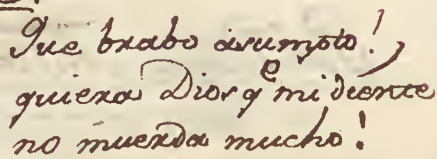 Que brabo asumpto!
quiera Dios qᵉ mi diente
no muerda mucho!